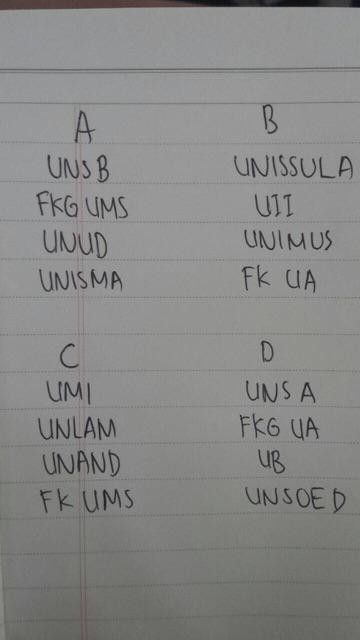 A
UNSB
FKG UMS
UNUD
UNISMA
B
UNISSULA
UII
UNIMUS
FK UA
C
UMI
UNLAM
UNAND
FK UMS
D
UNSA
FKG UA
UB
UNSOED